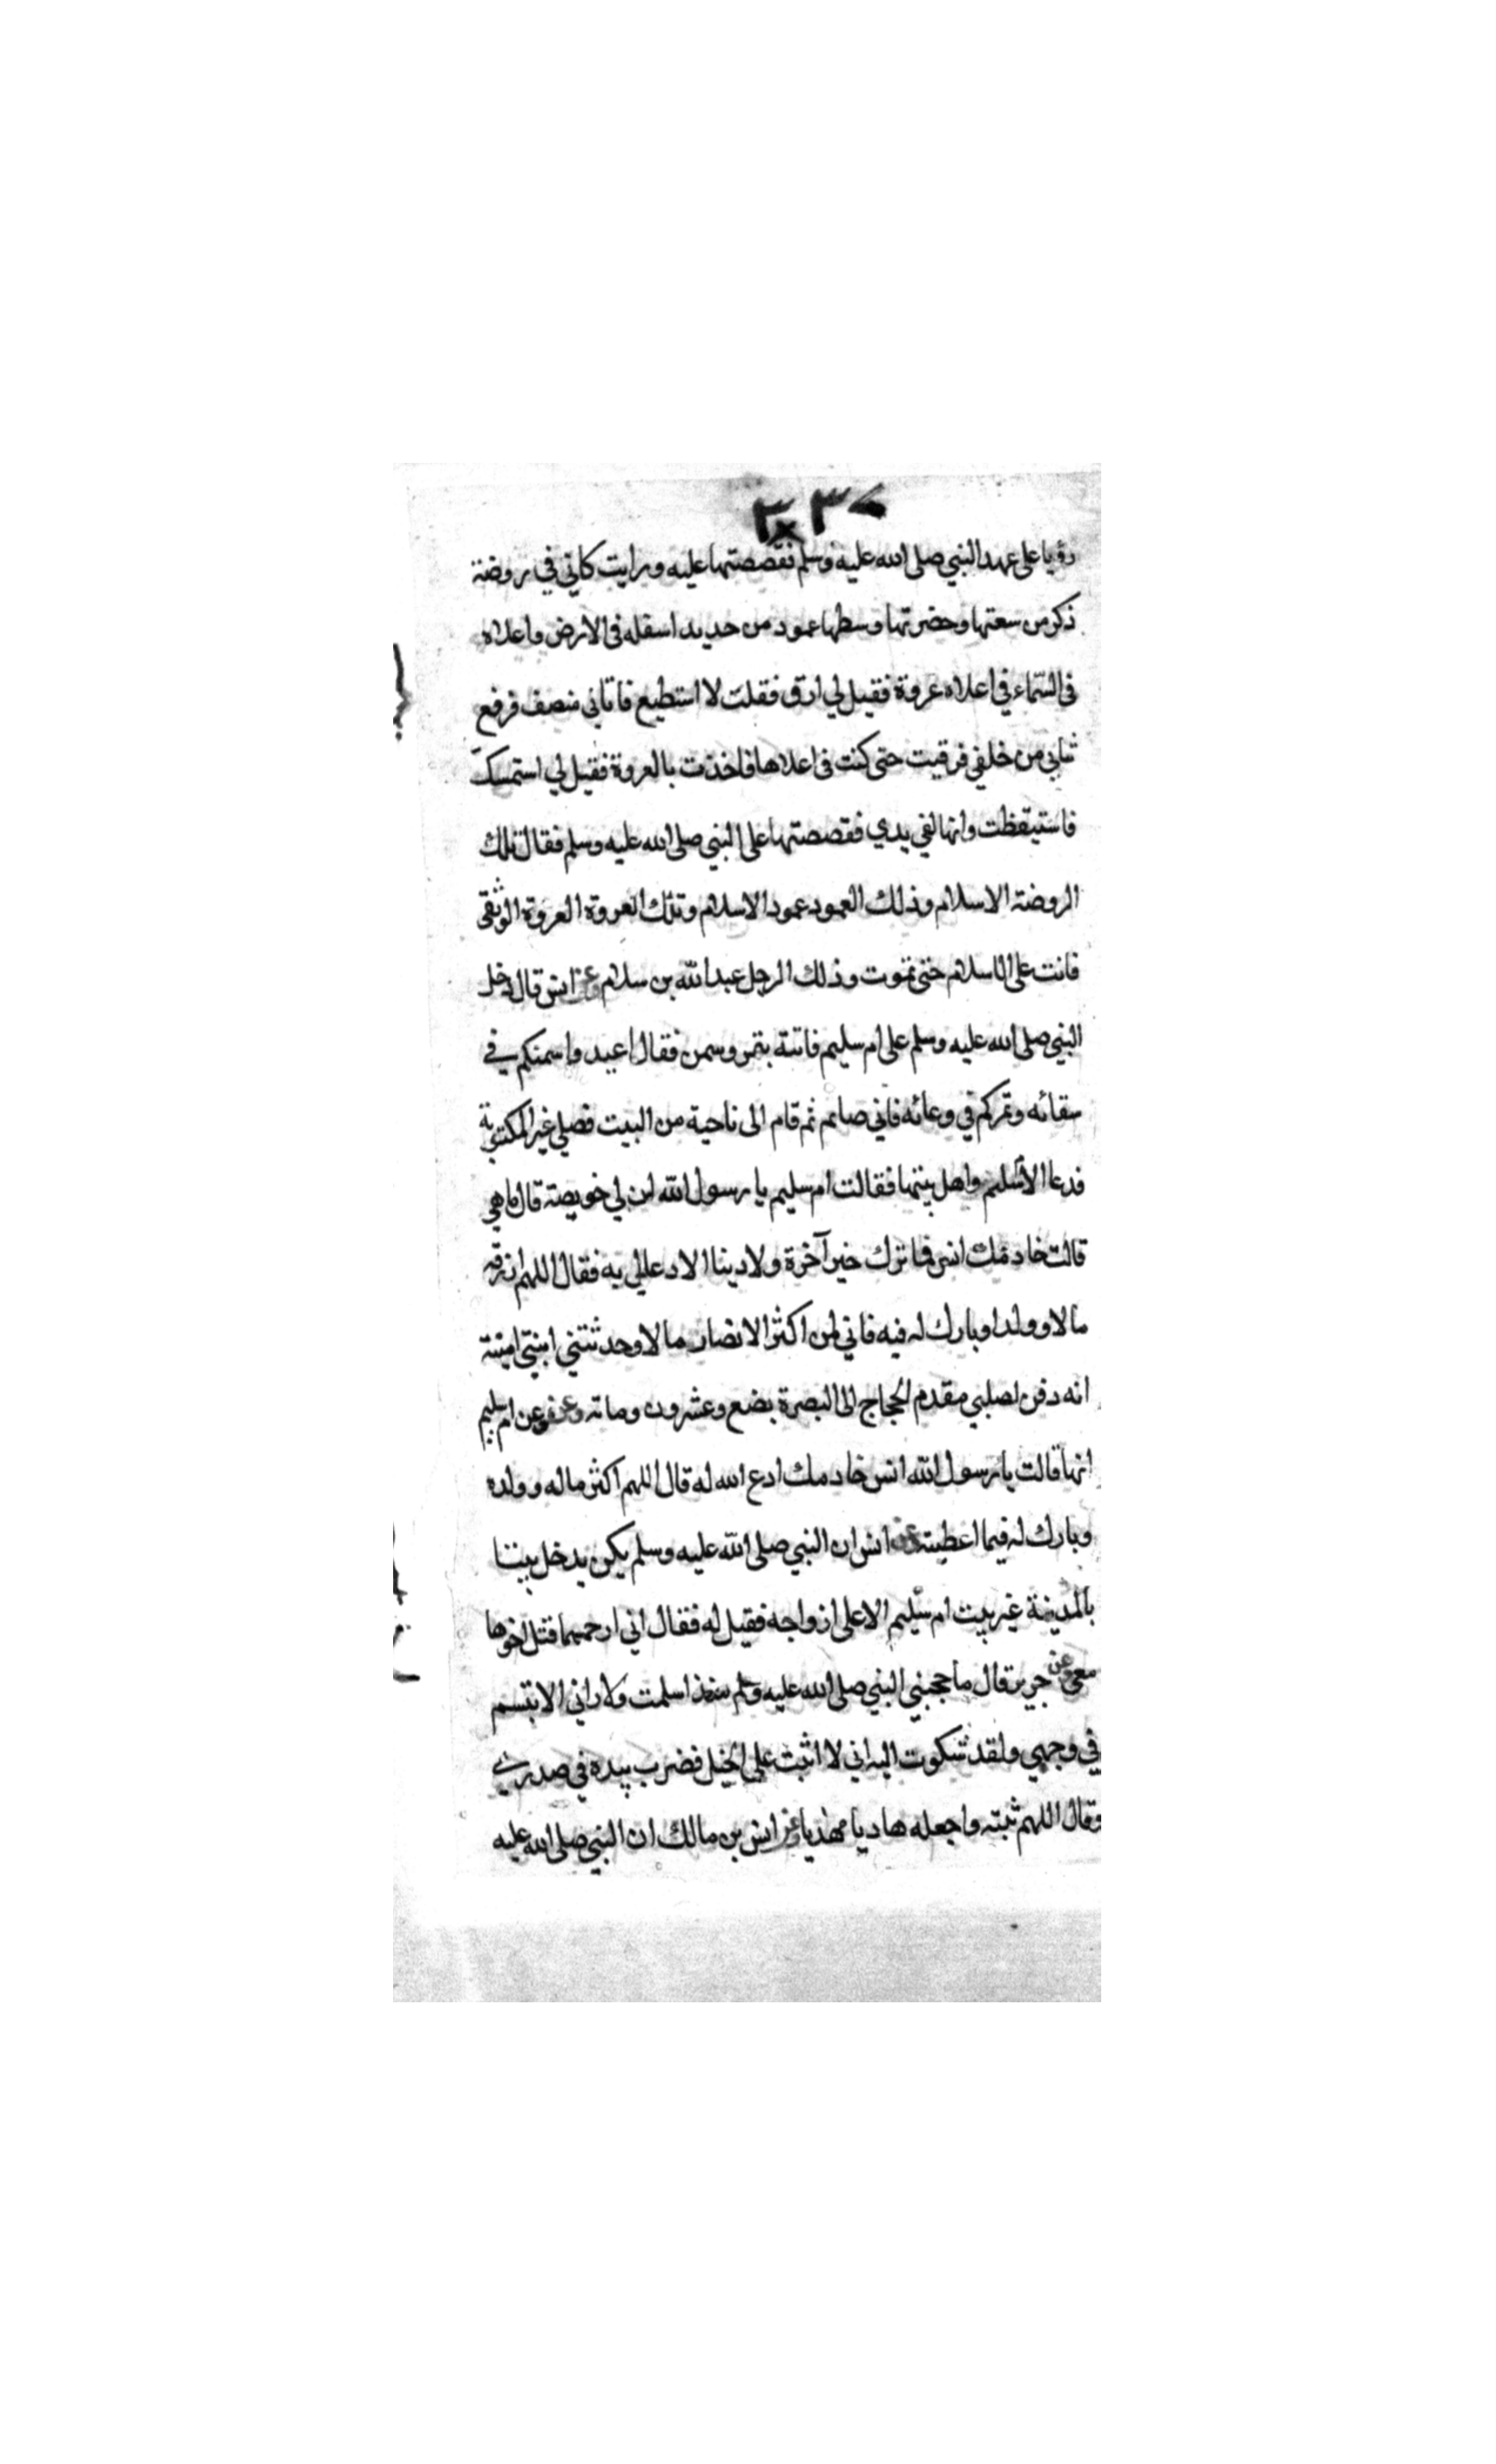 رؤيا على عهد النبي صلى الله عليه وسلم فقصصتها عليه ورايت كاني في روضة
ذكر من سعتها وخضرتها وسطها عمود من حديد اسفله في الارض واعلاه
في السماء في اعلاه عروة فقيل لي ارق فقلت لا استطيع فاتاني منصف فرفع
ثيابي من خلفي فرقيت حتى كنت في اعلاها فاخذت بالعروة فقيل لي استمسك
فاستيقظت وانها لفي يدي فقصصتها على النبي صلى الله عليه وسلم فقال تلك
الروضة الاسلام وذلك العمود عمود الاسلام وتلك العروة العروة الوثقى
فانت على الاسلام حتى تموت وذلك الرجل عبد الله بن سلام عن انس قال دخل
النبي صلى الله عليه وسلم على ام سليم فاتته بتمر وسمن فقال اعيدوا سمنكم في
سقائه وتمركم في وعائه فاني صائم ثم قام الى ناحية من البيت فصلى غير المكتوبة
فدعا لام سليم واهل بيتها فقالت ام سليم يا رسول الله ان لي خويصة قال ما هي
قالت خادمك انس فما ترك خير آخرة ولا دينا الا دعا لي به فقال اللهم ارزقه
مالا وولدا وبارك له فيه فاني لمن اكثر الانصار مالا وحدثتني ابنتي امينة
انه دفن لصلبي مقدم الحجاج الى البصرة بضع وعشرون ومائة وعن ام سليم
انها قالت يا رسول الله انس خادمك ادع الله له قال اللهم اكثر ماله وولده
وبارك له فيما اعطيته عن انس ان النبي صلى الله عليه وسلم يكن يدخل بيتا
بالمدينة غير بيت ام سليم الا على ازواجه فقيل له فقال اني ارحمها قتل اخوها
معي عن جرير قال ما حجبني النبي صلى الله عليه وسلم منذ اسلمت ولا راني الا تبسم
في وجهي ولقد شكوت اليه اني لا اثبت على الخيل فضرب بيده في صدري
وقال اللهم ثبته واجعله هاديا مهديا عن انس بن مالك ان النبي صلى الله عليه